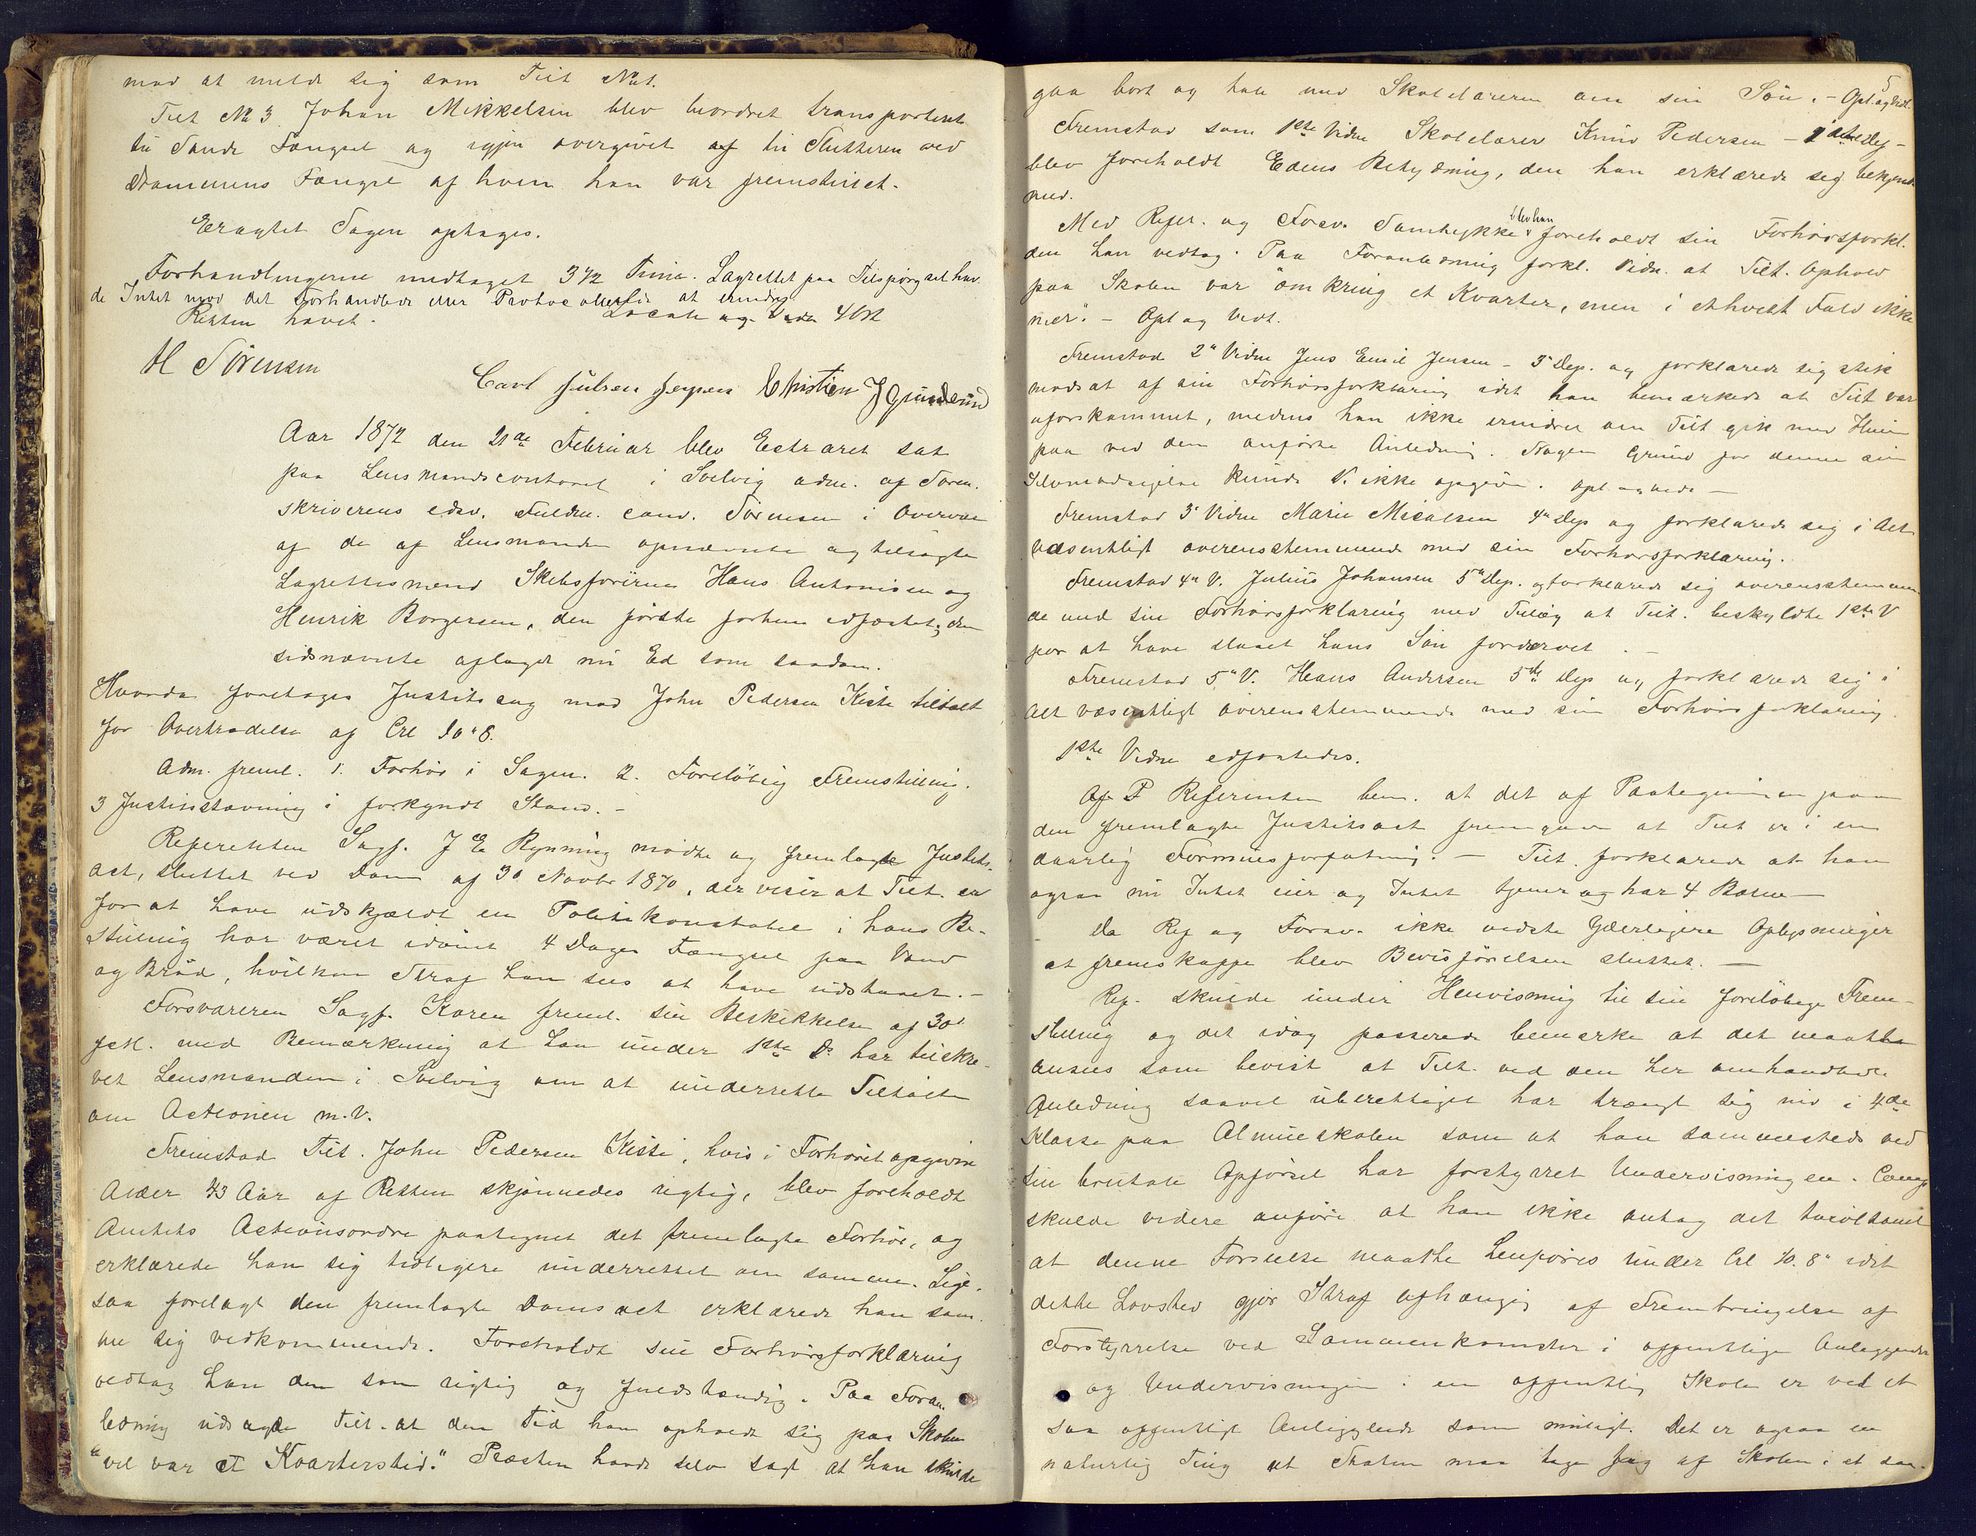 mod at melde sig som Tilt No 1.
Tilt No 3 Johan Mikkelsen blev beordret transporteret
til Sande Fængsel og igjen overgivet af til Slutteren ved
Drammens Fængsel af hvem han var fremstillet.
Eragtet Sagen optages.
Forhandlingerne medtaget 3 1/2 Time. Lagrettet paa Tilspørgsel hav
de Intet mod det Forhandlede eller Protocollen at erindre.
Retten hævet.
H Sørensen
Carl Julsen Jensen Christian J Grundsund
Aar 1872 den 21de Februar blev Extraret sat
paa Lensmandscontoret i Svelvig adm. af Soren.
skriverens edsv. Fuldm. cand. Sørensen i Overvær
af de af Lensmanden opnævnte og tilsagte
Lagrettesmænd Skibsfører Hans Antonisen og
Henrik Borgersen, den første forhen edfæstet, den
sidsnævnte aflagde nu Ed som saadan.
Hvorda foretages Justitssag mod John Pedersen Kiste tiltalt
for Overtrædelse af Crl 10 " 8.
Adm. freml. 1. Forhør i Sagen. 2. Foreløbig Fremstilling.
3 Justitsstævning i forkyndt Stand. -
Referenten Sagf. J E Rynning mødte og fremlagde Justits-
act, sluttet ved Dom af 30 Novbr 1870, der viser at Tilt. er
for at have udskjældt en Politikonstabel i hans Be-
stilling har været idømt 4 Dages Fængsel paa Vand
og Brød, hvilken Straf han sees at have udstaaet. -
Forsvareren Sagf. Koren freml. sin Beskikkelse af 30'
f. M. med Bemærkning at han under 1ste D. har tilskre-
vet Lensmanden i Svelvig om at underrette Tiltalte
om Actionen m. V.
Fremstod Tilt. John Pedersen Kiste, hvis i Forhøret opgivne
Alder 43 Aar af Retten skjønnedes rigtig, blev foreholdt
Amtets Actionsordre paategnet det fremlagte Forhør, og
erklærede han sig tidligere underrettet om samme. Lige-
saa forelagt den fremlagte Domsact erklærede han sam-
me sig vedkommende. Foreholdt sin Forhørsforklaring
vedtog han den som rigtig og fuldstændig. Paa Foran-
ledning udsagde Tilt. at den Tid han opholdt sig paa Skolen
"vel var et Kvarterstid." Præsten havde selv sagt at han skulde
gaa bort og tale med Skolelæreren om sin Søn. - Opl. og Vedt.
Fremstod som 1ste Vidne Skolelærer Knud Pedersen -
blev foreholdt Edens Betydning, den han erklærede sig bekjendt
med.
Med Refer. og Forsv. Samtykke blev han foreholdt sin Forhørsforkl.
den han vedtog. Paa Foranledning forkl. Vidn. at Tilt. Ophold
paa Skolen var "omkring et Kvarter, men i ethvert Fald ikke
mer". - Opl og Vedt.
Fremstod 2' Vidne Jens Emil Jensen - 3' Dep. og forklarede sig stik
modsat af sin Forhørsforklaring idet han bemærkede at Tilt var
uforskammet, medens han ikke erindrer om Tilt gik med Huen
paa ved den anførte Anledning. Nogen Grund for denne sin
Selvmodsigelse kunde V. ikke opgive. Opl. og vedt -
Fremstod 3' Vidne Marie Micalsen 4' Dep og forklarede sig i Alt
væsentligt overensstemmende med sin Forhørsforklaring.
Fremstod 4' V. Julius Johansen 5' Dep. og forklarede sig overensstemmen-
de med sin Forhørsforklaring med Tillæg at Tilt. beskyldte 1ste V
for at have slaaet hans Søn fordærvet. -
Fremstod 5' V. Hans Andersen 5te Dep og forklarede sig i
Alt væsentligt overensstemmende med sin Forhørsforklaring.
1ste Vidne edfæstedes.
Af Referenten bem. at det af Paategningen paa
den fremlagte Justitsact fremgaar at Tilt er i en
daarlig Formuesforfatning. - Tilt. forklarede at han
ogsaa nu Intet eier og Intet tjener og har 4 Børn -
Da Ref og Forsv. ikke vidste yderligere Oplysninger
at fremskaffe blev Bevisførelsen sluttet. -
Ref. skulde under Henvisning til sin foreløbige Frem-
stilling og det idag passerede bemærke at det maatte
ansees som bevist at Tilt. ved den her omhandlede
Anledning saavel uberettiget har trængt sig ind i 4de
Klasse paa Almueskolen som at han sammesteds ved
sin brutale Opførsel har forstyrret Undervisningen. Comp.
skulde videre anføre at han ikke antog det tvivlsomt
at denne Forseelse maatte henføres under Crl 10. 8" idet
dette Lovsted gjør Straf afhængig af Frembringelse af
Forstyrrelse ved Sammenkomster i offentlige Anliggender
og Undervisningen i en offentlig Skole er vel et
saa offentligt Anliggende som muligt. Det er ogsaa en
naturlig Ting at Staten maa tage sig af Skolen i et saa-